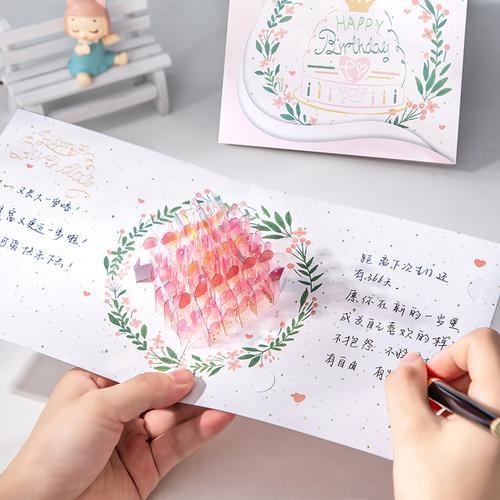 HAPPY
Birthday
to
you
Happy
Birthday
一又长大一步啦！
富又更近一步啦！
要快乐下去！
距离下次生日还
有366天
愿你在新的一岁里
成为自己喜欢的样
不抱怨、不
有自由、有